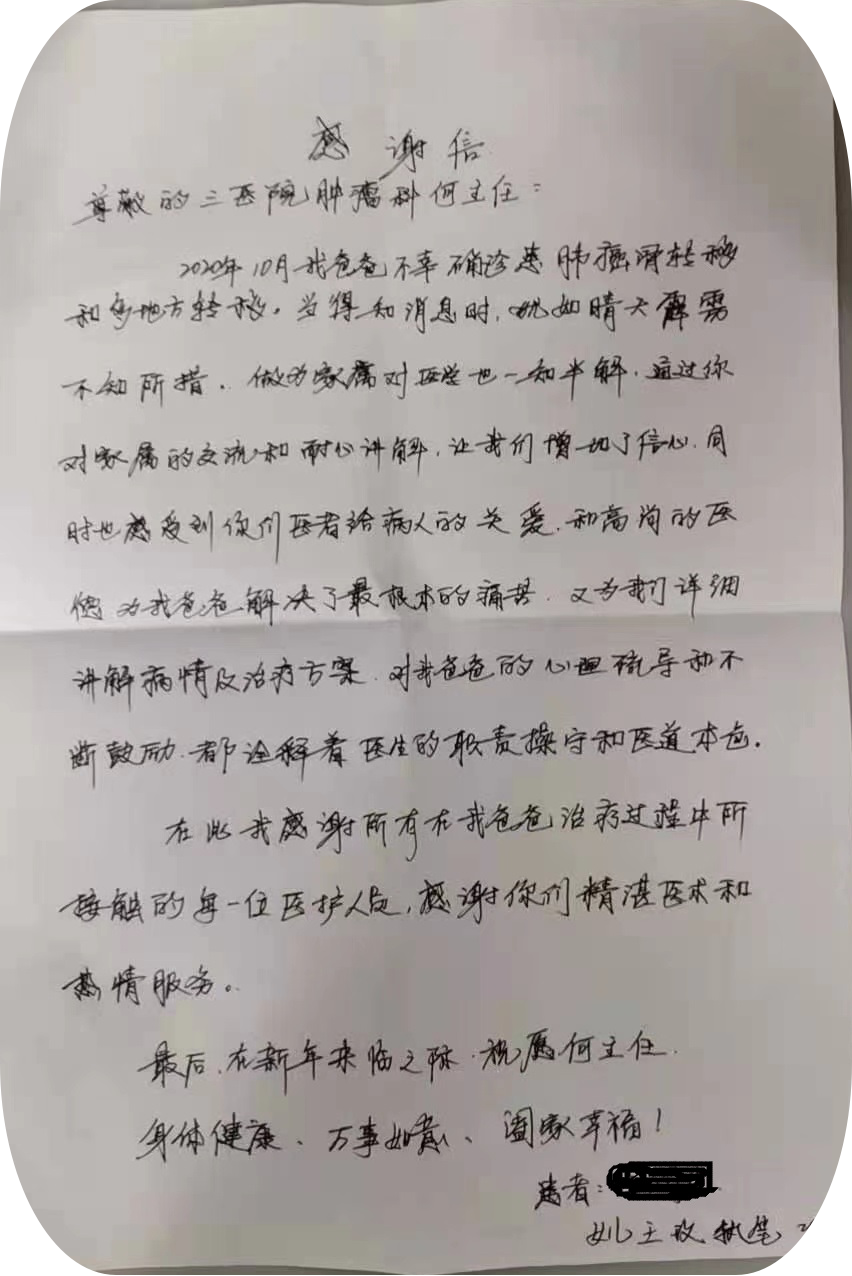 感谢信
尊敬的三医院肿瘤科何主任：
2020年10月我爸爸不幸确诊患肺癌骨转移
和多地方转移。当得知消息时，犹如晴天霹雳
不知所措。做为家属对医学也一知半解，通过你
对家属的交流和耐心讲解，让我们增加了信心，同
时也感受到你们医者给病人的关爱，和高尚的医
德为我爸爸解决了最根本的痛苦，又为我们详细
讲解病情及治疗方案，对我爸爸的心理疏导和不
断鼓励，都诠释着医生的职责操守和医道本色。
在此我感谢所有在我爸爸治疗过程中所
接触的每一位医护人员，感谢你们精湛医术和
热情服务。
最后，在新年来临之际，祝愿何主任
身体健康、万事如意、阖家幸福！
患者：
执笔